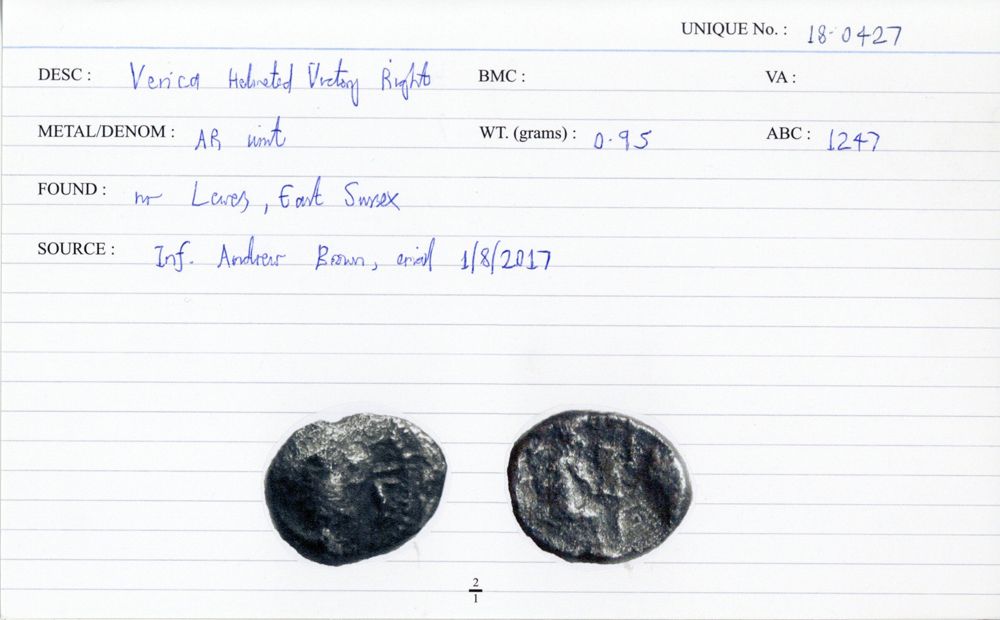 UNIQUE No. : 18-0427
DESC : Verica Helmeted Victory Right BMC : VA :
METAL/DENOM : AR unit WT. (grams) : 0.95 ABC : 1247
FOUND : nr Lewes, East Sussex
SOURCE : Inf. Andrew Brown, email 1/8/2017
2
1